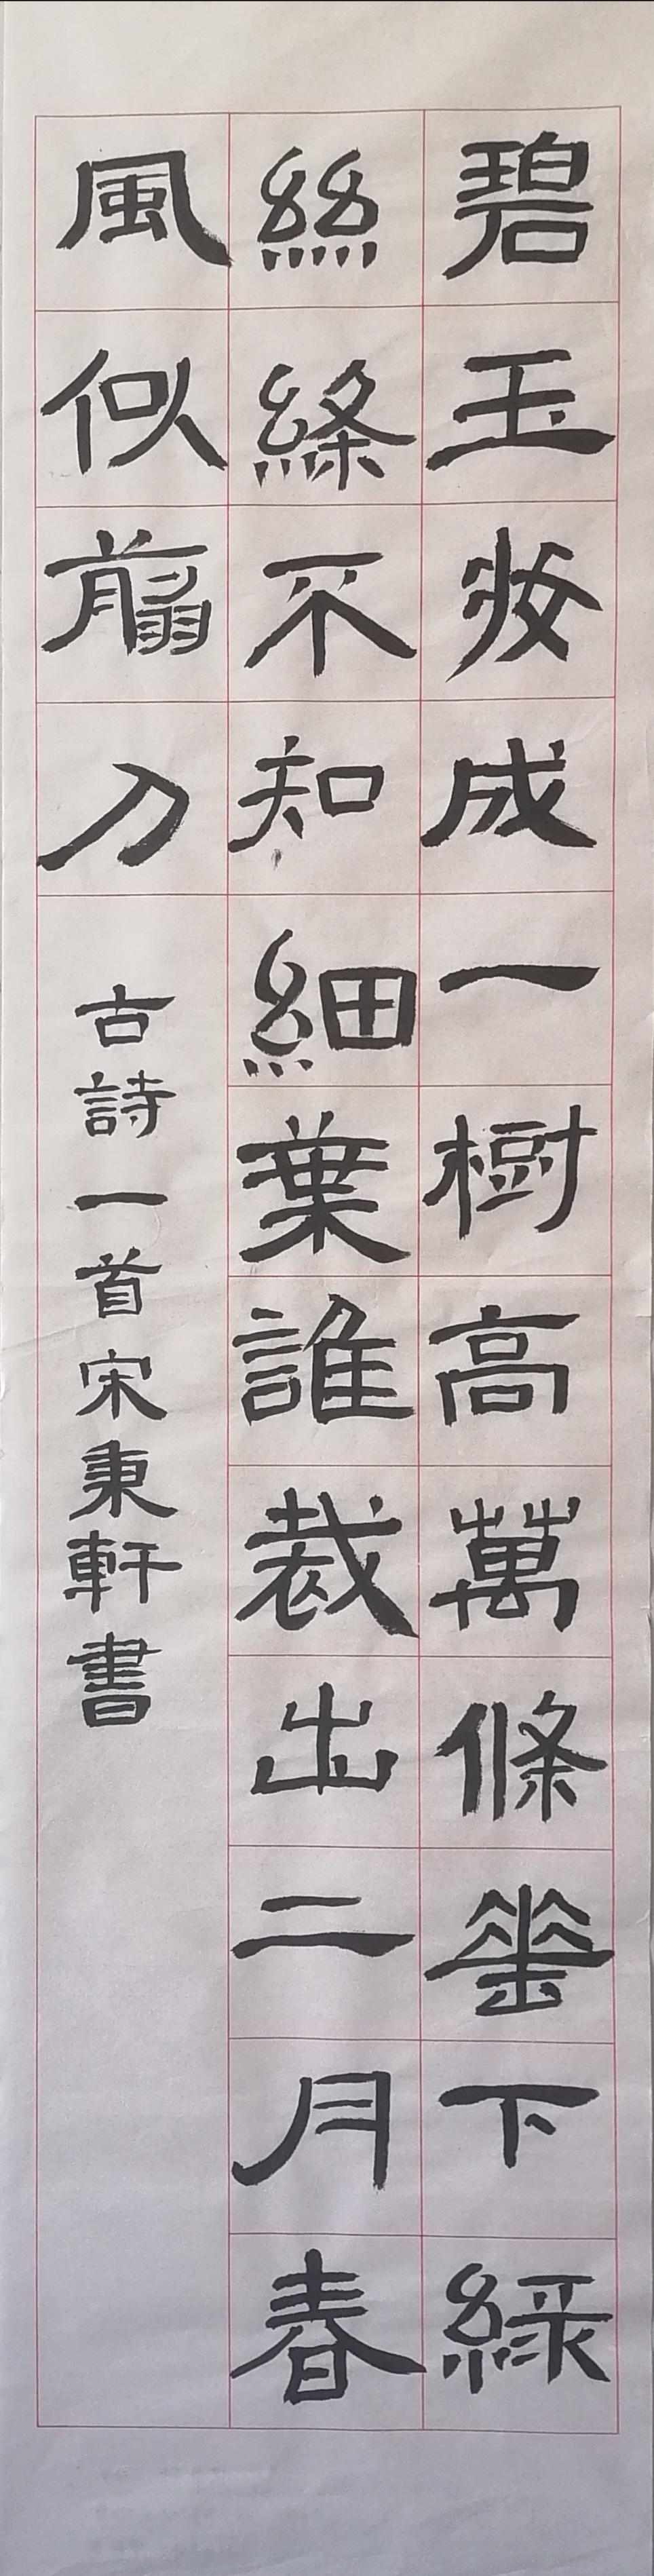 碧玉妝成一樹高萬條垂下綠
絲絛不知細葉誰裁出二月春
風似翦刀
古詩一首宋秉軒書